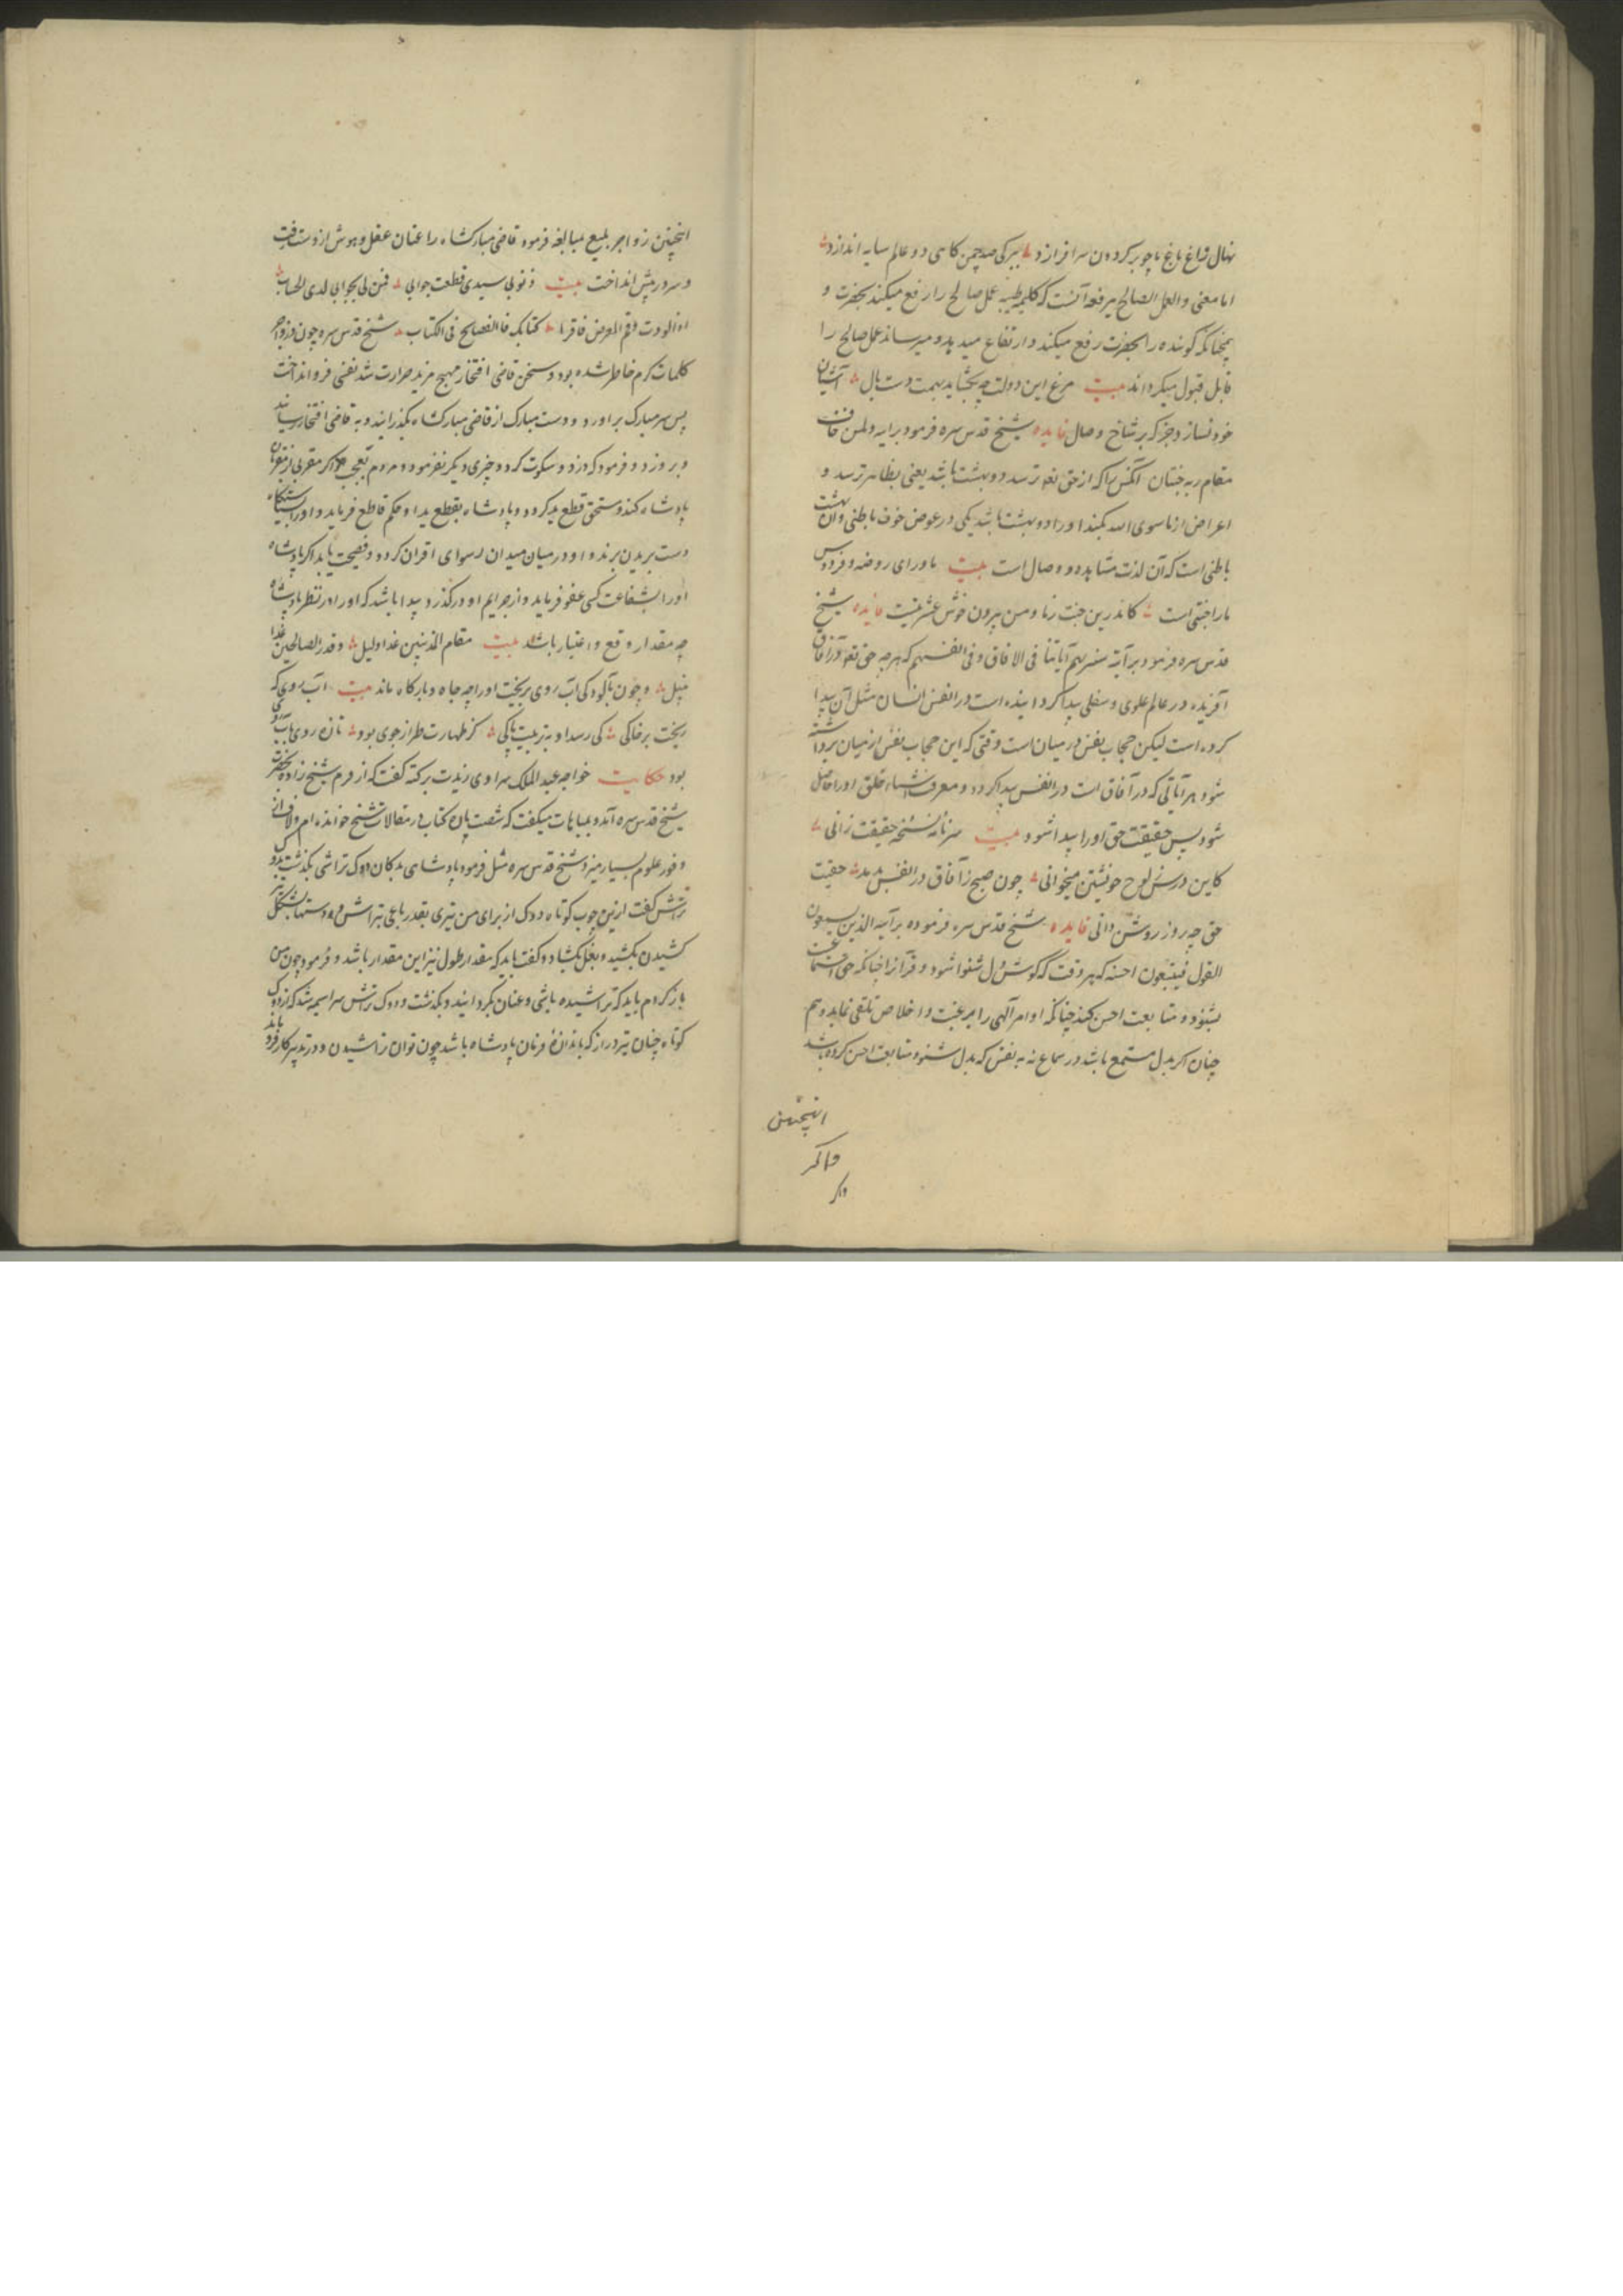 نهال فراغ باغ ما چو بر کردون سر افرازد ببرکی صد چمن کاهی دو عالم سایه اندازد
اما معنی والعمل الصالح یرفعه آنست که کلمه طیبه عمل صالح را رفع میکند بحضرت و
همچنانکه کوینده را بحضرت رفع میکند و ارتفاع میدهد و میرساند عمل صالح را
قابل قبول میکرداند بیت مرغ این دولت چو بکشاید بهمت دست بال آشیان
خود نسازد جز که بر شاخ وصال فایده شیخ قدس سره فرمود بر آیه ولمن خاف
مقام ربه جنتان آنکس را که از حق تعه ترسد دو بهشت باشد یعنی بظاهر ترسد و
اعراض از ما سوی الله بکند او را دو بهشت باشد یکی در عوض خوف باطنی و آن بهشت
باطنی است که آن لذت مشاهده و وصال است بیت ماورای روضه و فردوس
ما را جنتی است کاندرین جنت رنا و من بیرون خوش عشرتیست فایده شیخ
قدس سره فرمود بر آیه سنریهم آیاتنا فی الافاق وفی انفسهم که هر چه حق تعه در آفاق
آفریده در عالم علوی و سفلی پیدا کردانیده است در انفس انسان مثل آن پیدا
کرده است لیکن حجاب نفس در میان است وقتی که این حجاب نفس از میان برداشته
شود هر آیاتی که در آفاق است در انفس پیدا کردد و معرفت اشیاء خلق او را حاصل
شود پس حقیقت حق او را پیدا شود بیت سرنامه نسخه حقیقت زانی
کاین درس ز لوح خویشتن میخوانی چون صبح ز آفاق در انفس بدمد حقیت
حق چو روز روشن دانی فایده شیخ قدس سره فرموده بر آیه الذین یستمعون
القول فیتبعون احسنه که هر وقت که کوش دل شنوا شود و قرآن را چنانکه حق استماعست
بشنود و متابعت احسن کند چنانکه اوامر آلهی را برغبت و اخلاص تلقی نماید و هم
چنان اکر بدل مستمع باشد در سماع نه به نفس که بدل شنود متابعت احسن کرده باشد
اینچنین
و اکر
واکر
اینچنین زواجر بلیغ مبالغه فرمود قاضی مبارکشاه را عنان عقل و هوش از دست برفت
و سر در پیش انداخت بیت ذنوبی سیدی قطعت جوابی فمن لی بجوابی لدی الحساب
کتابک فا الفضایح فی الکتاب شیخ قدس سره چون
کلمات کرم خاطر شده بود و سخن قاضی افتخار مهیج مزید حرارت شد نفسی فرو انداخت
پس سر مبارک بر آورد و دست مبارک از قاضی مبارکشاه بکذرانید و به قاضی افتخار رسانید
و برو زد و فرمود که دزد و سکوت کرد و چیزی دیکر نفرمود و مردم تعجب اکر مقربی از مقربان
پادشاه کند و مستحق قطع ید کردد و پادشاه بقطع ید او حکم قاطع فرماید و او را بسیاستکاه
دست بریدن برند و او در میان میدان رسوای اقران کردد و فضیحت یابد اکر پادشاه
او را بشفاعت کسی عفو فرماید و از جرایم او در کذرد پیدا باشد که او را در نظر پادشاه
چه مقدار وقع و اعتبار باشد بیت مقام المذنبین غدا ذلیل و قدر الصالحین غدا
نبیل و چون بآلودکی آب روی بریخت او را چه جاه و بارکاه ماند بیت آب روی که
ریخت بر خاکی کی رسد او به تربیت پاکی کز طهارت طراز جوی بود تازه روی بآب روی
بود حکایت خواجه عبد الملک سراوی زیدت برکته کفت که از قرم شیخ زاده بحضرت
شیخ قدس سره آمد و بمباهات میکفت که شصت پاره کتاب در مقالات مشایخ خوانده ام و لاف از
وفور علوم بسیار میزد شیخ قدس سره مثل فرمود پادشاهی بدکان دوک تراشی بکذشت بدوک
تراش کفت ازین چوب کوتاه دوک از برای من تیری بقدر باعی بتراش و دستها بشکل تیر
کشیدن بکشید و بغل بکشاد و کفت باید که مقدار طول تیر این مقدار باشد و فرمود چون من
باز کردم باید که تراشیده باشی و عنان بکردانید و بکذشت و دوک تراش سراسیمه شد که از دوک
کوتاه چنان تیر دراز که باندازه فرمان پادشاه باشد چون توان تراشیدن و در تدبیر کار فرو ماند